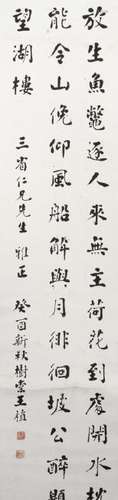 放生魚鼈逐人來無主荷花到處開水枕
能令山俛仰風船解與月徘徊坡公醉題
望湖樓
三省仁兄先生 雅正
癸酉新秋樹棠王植